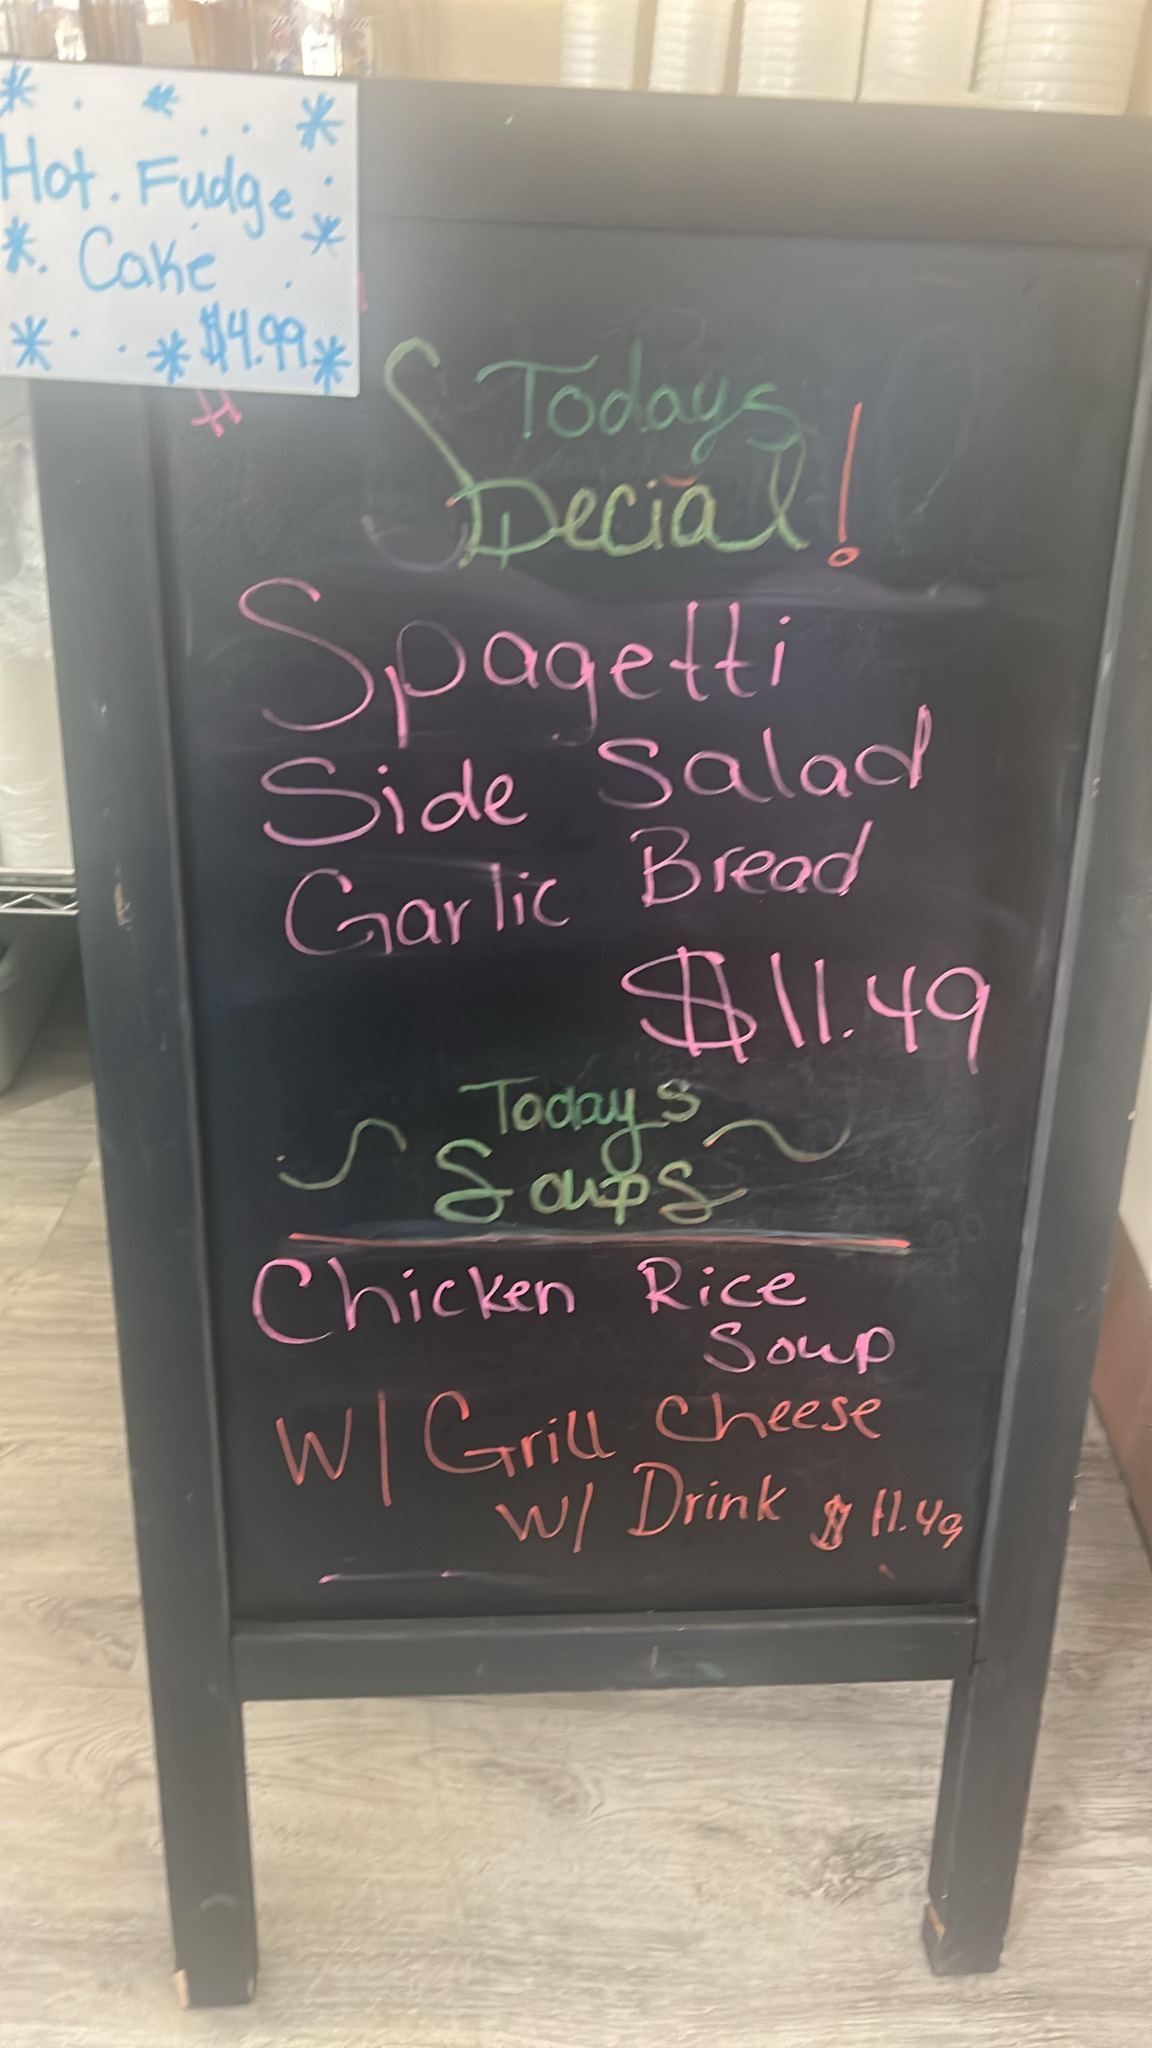 Hot Fudge
Cake
$4.99
Todays
Special!
Spagetti
Side Salad
Garlic Bread
$11.49
Todays
Soups
Chicken Rice
Soup
W/ Grill Cheese
W/ Drink $11.49